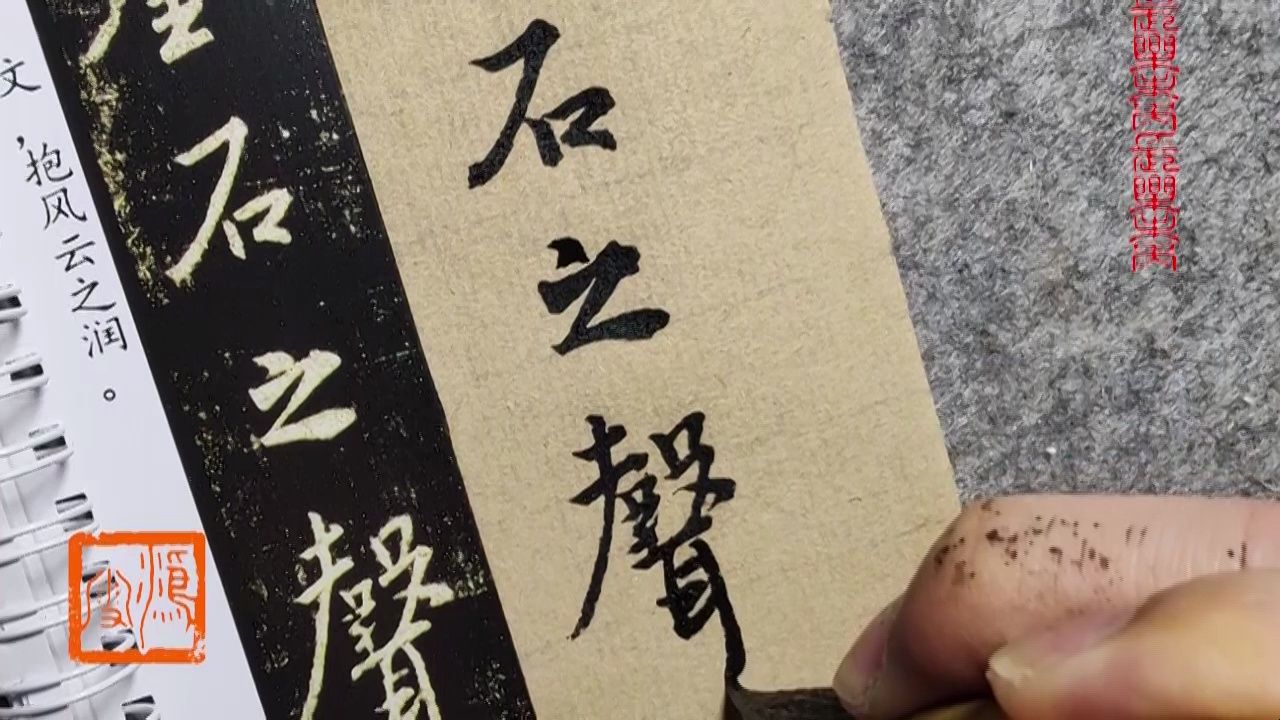 文，抱风云之润。
石之聲
石之聲